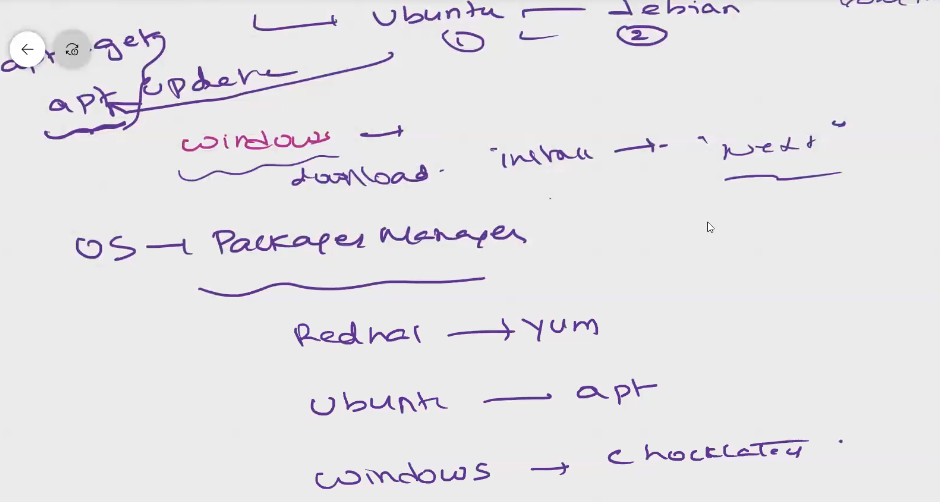 Ubuntu Debian
1 2
apt get
apt update
windows
download. "install "Next"
OS Packages Manager
Redhat yum
Ubuntu apt
windows chocklatey